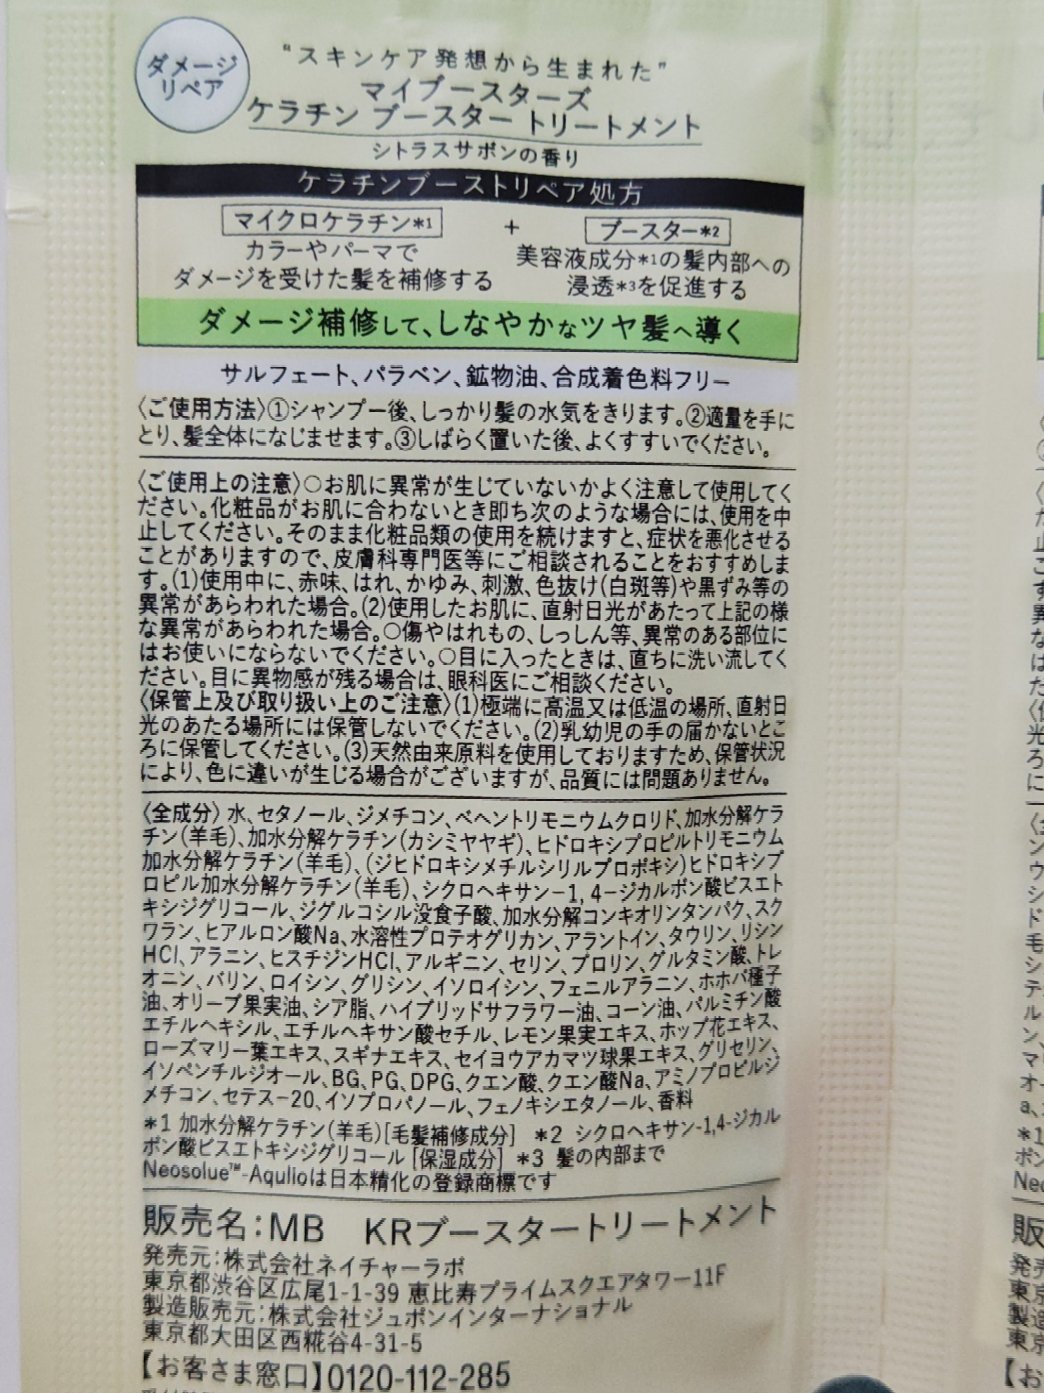 ダメージ
リペア
"スキンケア発想から生まれた"
マイブースターズ
ケラチン ブースター トリートメント
シトラスサボンの香り
ケラチンブーストリペア処方
マイクロケラチン*1
カラーやパーマで
ダメージを受けた髪を補修する
+
ブースター*2
美容液成分*1の髪内部への
浸透*3を促進する
ダメージ補修して、しなやかなツヤ髪へ導く
サルフェート、パラベン、鉱物油、合成着色料フリー
〈ご使用方法〉①シャンプー後、しっかり髪の水気をきります。②適量を手に
とり、髪全体になじませます。③しばらく置いた後、よくすすいでください。
〈ご使用上の注意〉○お肌に異常が生じていないかよく注意して使用してく
ださい。化粧品がお肌に合わないとき即ち次のような場合には、使用を中
止してください。そのまま化粧品類の使用を続けますと、症状を悪化させる
ことがありますので、皮膚科専門医等にご相談されることをおすすめしま
す。(1)使用中に、赤味、はれ、かゆみ、刺激、色抜け(白斑等)や黒ずみ等の
異常があらわれた場合。(2)使用したお肌に、直射日光があたって上記の様
な異常があらわれた場合。○傷やはれもの、しっしん等、異常のある部位に
はお使いにならないでください。○目に入ったときは、直ちに洗い流してく
ださい。目に異物感が残る場合は、眼科医にご相談ください。
〈保管上及び取り扱い上のご注意〉(1)極端に高温又は低温の場所、直射日
光のあたる場所には保管しないでください。(2)乳幼児の手の届かないとこ
ろに保管してください。(3)天然由来原料を使用しておりますため、保管状況
により、色に違いが生じる場合がございますが、品質には問題ありません。
〈全成分〉水、セタノール、ジメチコン、ベヘントリモニウムクロリド、加水分解ケラ
チン(羊毛)、加水分解ケラチン(カシミヤヤギ)、ヒドロキシプロピルトリモニウム
加水分解ケラチン(羊毛)、(ジヒドロキシメチルシリルプロポキシ)ヒドロキシプ
ロピル加水分解ケラチン(羊毛)、シクロヘキサン-1,4-ジカルボン酸ビスエト
キシジグリコール、ジグルコシル没食子酸、加水分解コンキオリンタンパク、スク
ワラン、ヒアルロン酸Na、水溶性プロテオグリカン、アラントイン、タウリン、リシン
HCl、アラニン、ヒスチジンHCl、アルギニン、セリン、プロリン、グルタミン酸、トレ
オニン、バリン、ロイシン、グリシン、イソロイシン、フェニルアラニン、ホホバ種子
油、オリーブ果実油、シア脂、ハイブリッドサフラワー油、コーン油、パルミチン酸
エチルヘキシル、エチルヘキサン酸セチル、レモン果実エキス、ホップ花エキス、
ローズマリー葉エキス、スギナエキス、セイヨウアカマツ球果エキス、グリセリン、
イソペンチルジオール、BG、PG、DPG、クエン酸、クエン酸Na、アミノプロピルジ
メチコン、セテス-20、イソプロパノール、フェノキシエタノール、香料
*1 加水分解ケラチン(羊毛)[毛髪補修成分] *2 シクロヘキサン-1,4-ジカル
ボン酸ビスエトキシジグリコール [保湿成分] *3 髪の内部まで
Neosolue™-Aqulioは日本精化の登録商標です
販売名:MB KRブースタートリートメント
発売元:株式会社ネイチャーラボ
東京都渋谷区広尾1-1-39 恵比寿プライムスクエアタワー11F
製造販売元:株式会社ジュポンインターナショナル
東京都大田区西糀谷4-31-5
【お客さま窓口】0120-112-285